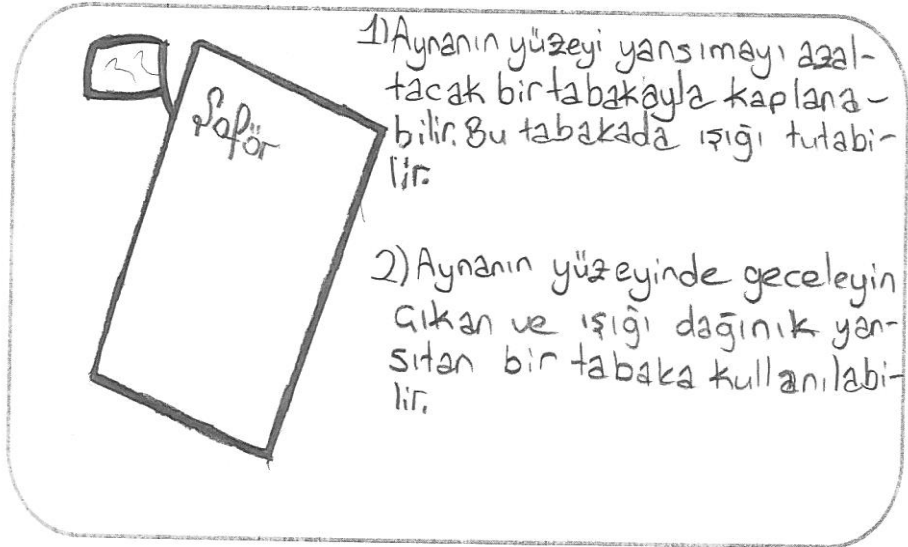 Şoför
1) Aynanın yüzeyi yansımayı azal-
tacak bir tabakayla kaplana-
bilir. Bu tabakada ışığı tutabi-
lir.
2) Aynanın yüzeyinde geceleyin
çıkan ve ışığı dağınık yan-
sıtan bir tabaka kullanılabi-
lir.